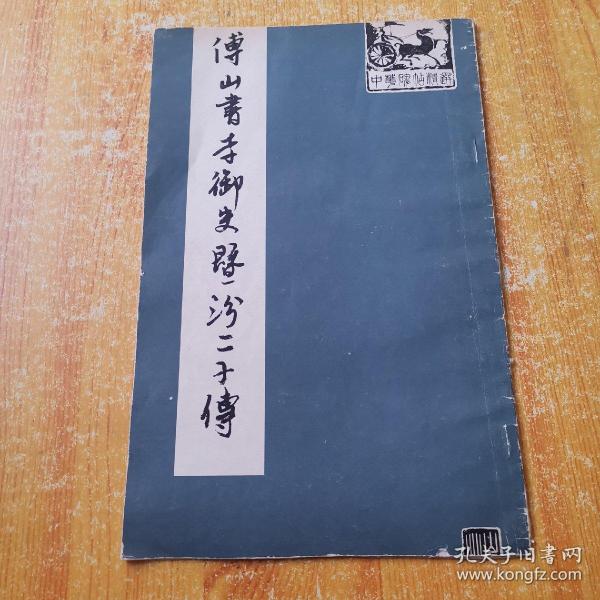 傅山書李御史暨汾二子傳
中華碑帖精選
孔夫子旧書网
www.kongfz.com